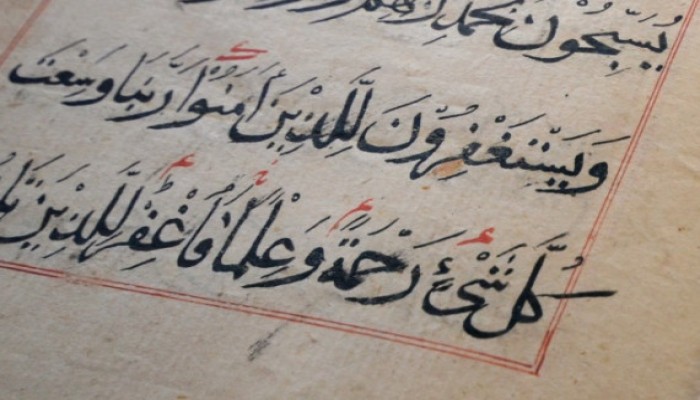 يُسَبِّحُونَ بِحَمْدِ رَبِّهِمْ
وَيَسْتَغْفِرُونَ لِلَّذِينَ آمَنُوا رَبَّنَا وَسِعْتَ
كُلَّ شَيْءٍ رَحْمَةً وَعِلْمًا فَاغْفِرْ لِلَّذِينَ